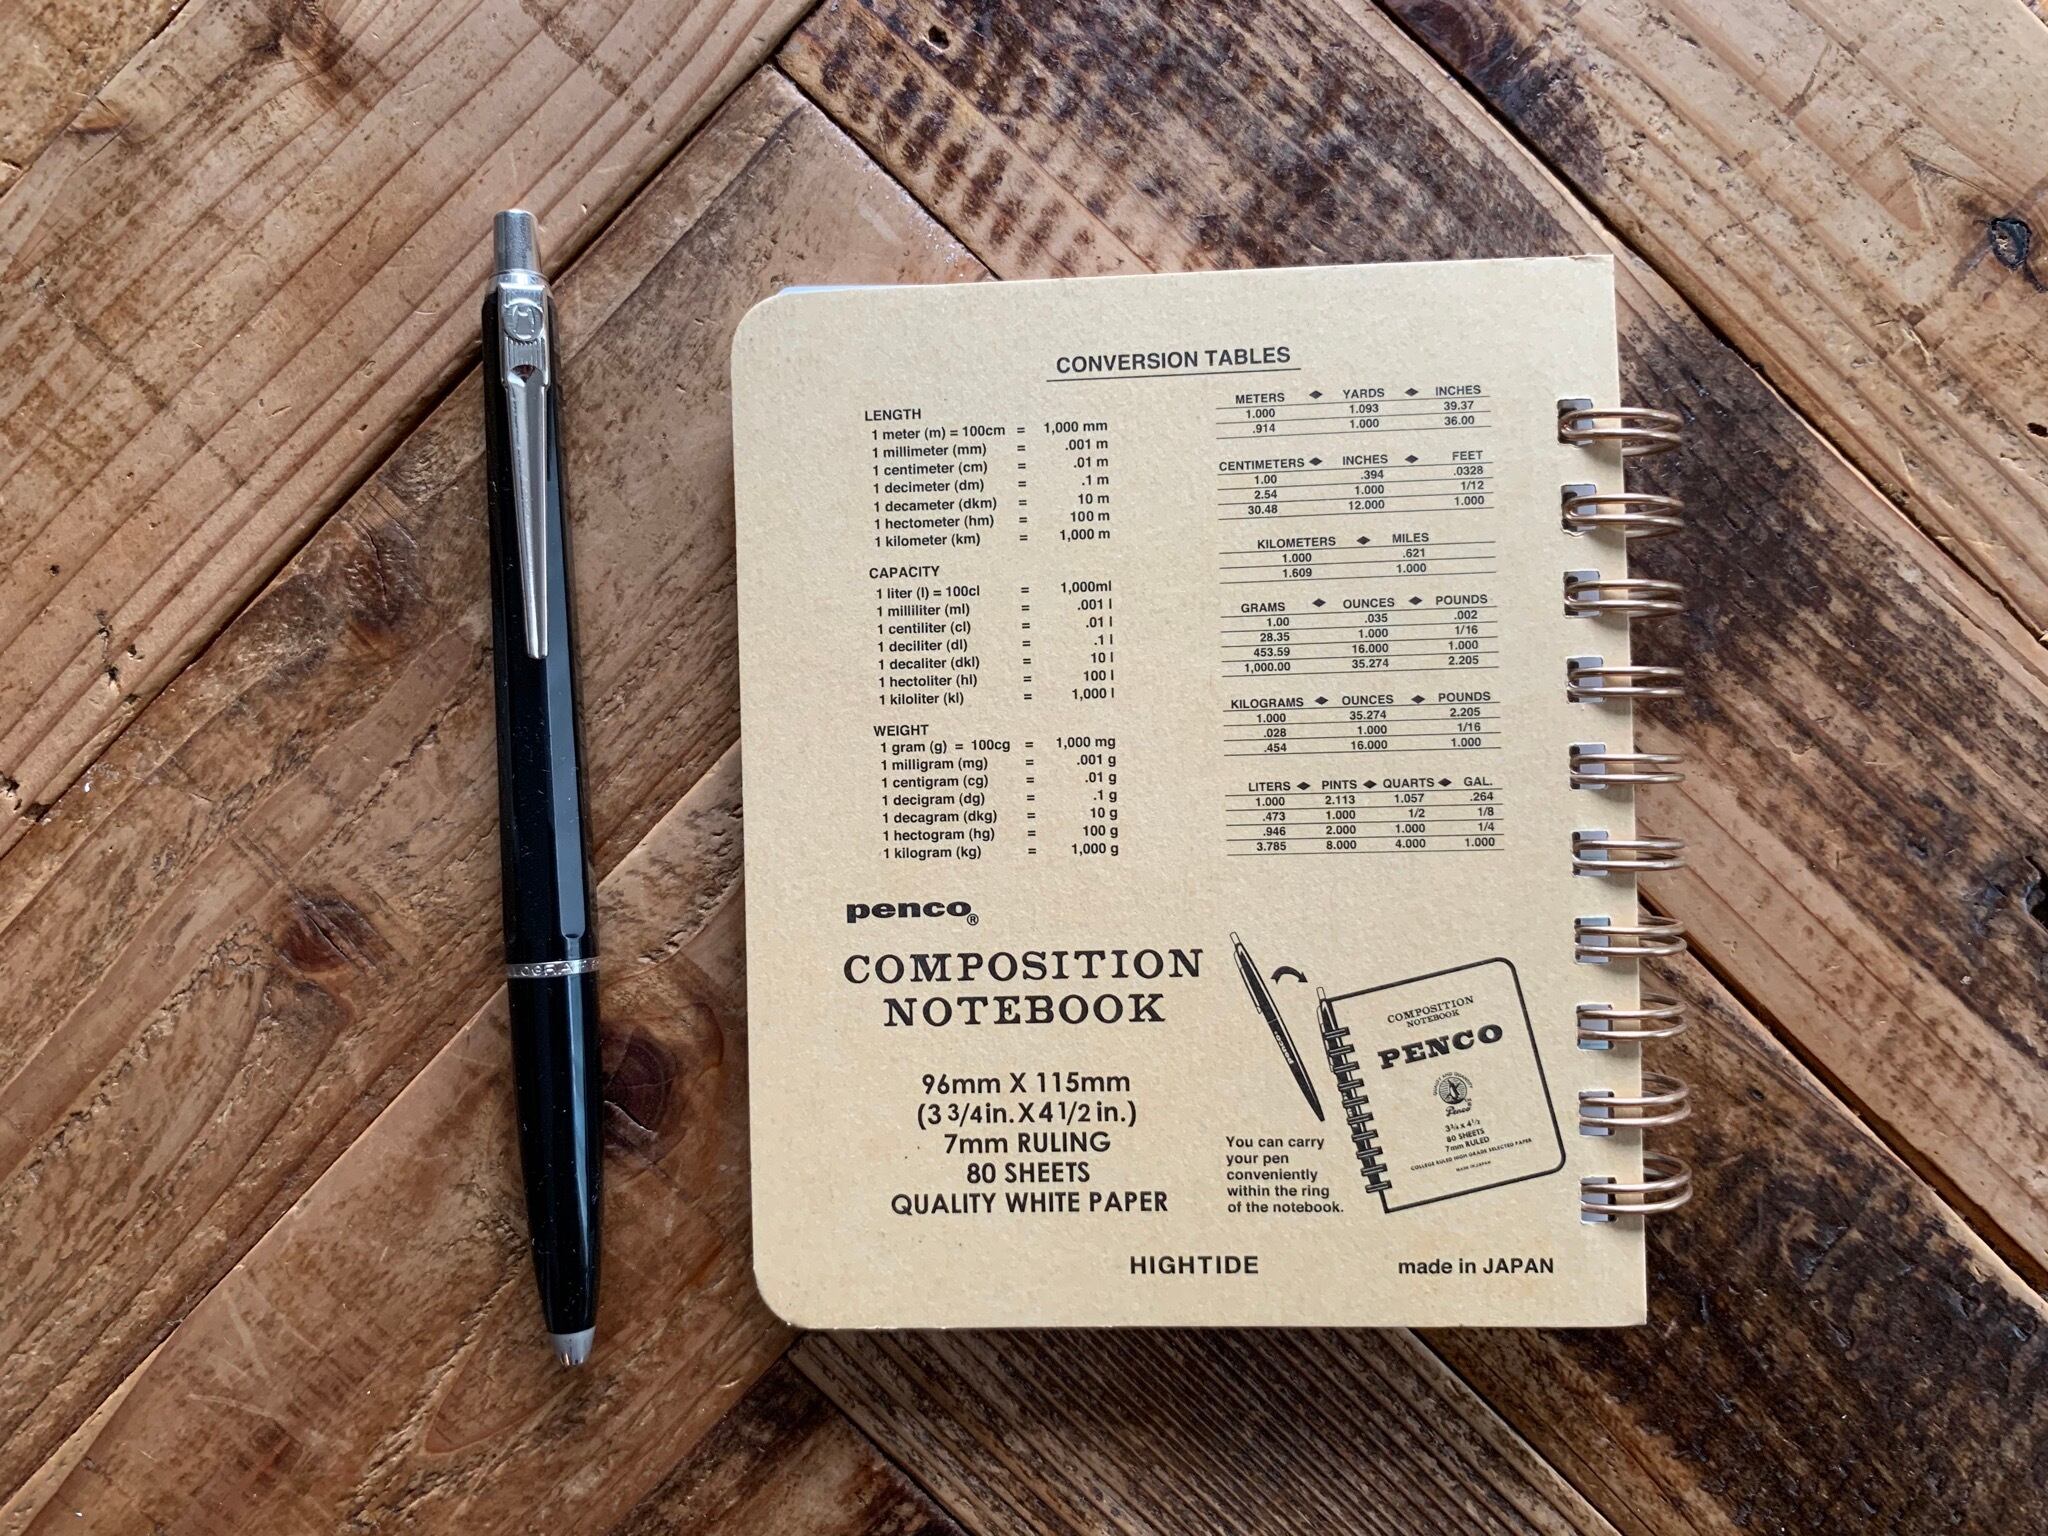 CONVERSION TABLES
LENGTH
1 meter (m) = 100cm = 1,000 mm
1 millimeter (mm) = .001 m
1 centimeter (cm) = .01 m
1 decimeter (dm) = .1 m
1 decameter (dkm) = 10 m
1 hectometer (hm) = 100 m
1 kilometer (km) = 1,000 m
CAPACITY
1 liter (l) = 100cl = 1,000ml
1 milliliter (ml) = .001 l
1 centiliter (cl) = .01 l
1 deciliter (dl) = .1 l
1 decaliter (dkl) = 10 l
1 hectoliter (hl) = 100 l
1 kiloliter (kl) = 1,000 l
WEIGHT
1 gram (g) = 100cg = 1,000 mg
1 milligram (mg) = .001 g
1 centigram (cg) = .01 g
1 decigram (dg) = .1 g
1 decagram (dkg) = 10 g
1 hectogram (hg) = 100 g
1 kilogram (kg) = 1,000 g
METERS ◆ YARDS ◆ INCHES
1.000 1.093 39.37
.914 1.000 36.00
CENTIMETERS ◆ INCHES ◆ FEET
1.00 .394 .0328
2.54 1.000 1/12
30.48 12.000 1.000
KILOMETERS ◆ MILES
1.000 .621
1.609 1.000
GRAMS ◆ OUNCES ◆ POUNDS
1.00 .035 .002
28.35 1.000 1/16
453.59 16.000 1.000
1,000.00 35.274 2.205
KILOGRAMS ◆ OUNCES ◆ POUNDS
1.000 35.274 2.205
.028 1.000 1/16
.454 16.000 1.000
LITERS ◆ PINTS ◆ QUARTS ◆ GAL.
1.000 2.113 1.057 .264
.473 1.000 1/2 1/8
.946 2.000 1.000 1/4
3.785 8.000 4.000 1.000
penco®
COMPOSITION
NOTEBOOK
96mm X 115mm
(3 3/4in. X 4 1/2 in.)
7mm RULING
80 SHEETS
QUALITY WHITE PAPER
COMPOSITION
NOTEBOOK
PENCO
Penco
3¾ x 4½
80 SHEETS
7mm RULED
COLLEGE RULED HIGH GRADE SELECTED PAPER
MADE IN JAPAN
You can carry
your pen
conveniently
within the ring
of the notebook.
HIGHTIDE
made in JAPAN